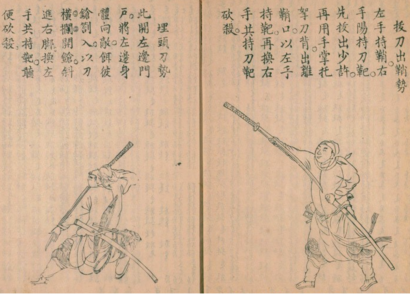 拔刀出鞘勢
左手持鞘右
手陽持刀靶
先拔出少許
再用手掌托
拏刀背出離
鞘口以左手
持靶再換右
手共持刀靶
砍殺
埋頭刀勢
此開左邊門
戶將左邊身
體向敵餌彼
鎗劄入以刀
橫攔開鎗斜
進右脚換左
手共持靶前
便砍殺